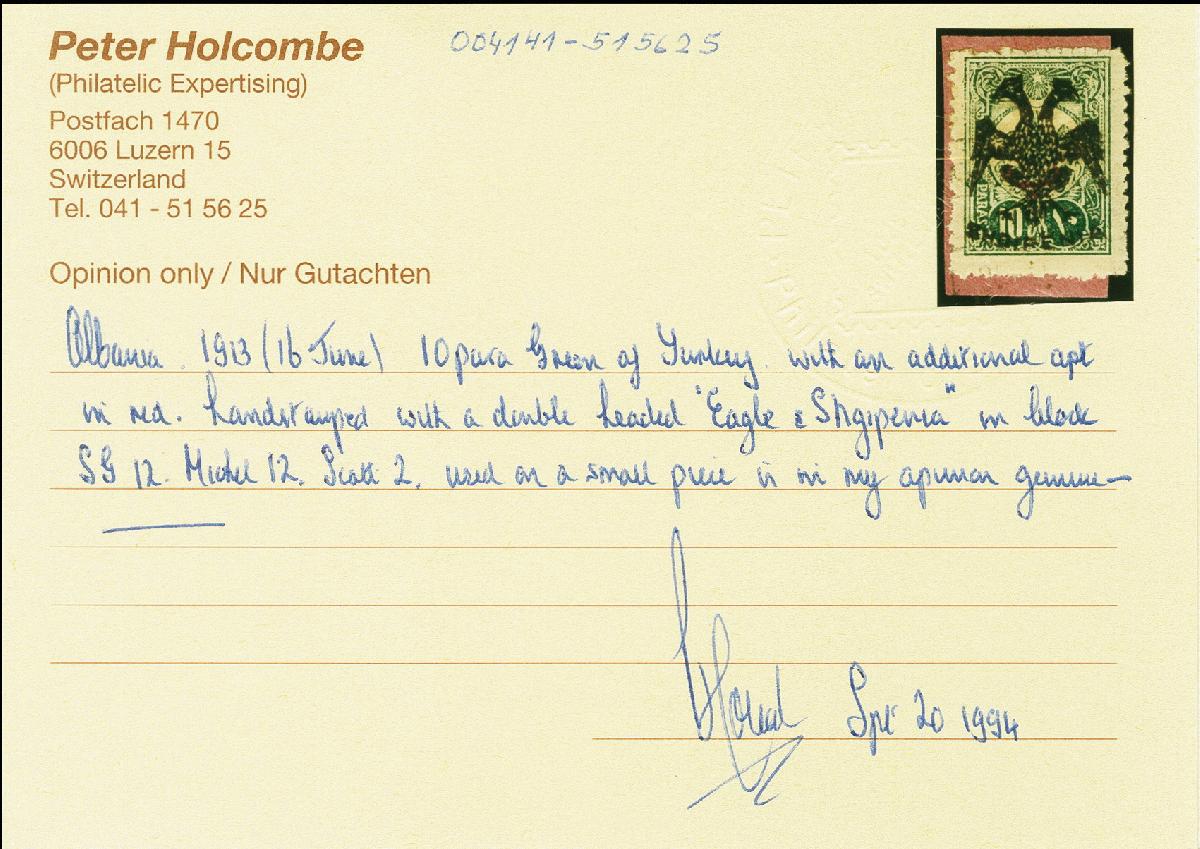 Peter Holcombe
004141-515625
(Philatelic Expertising)
Postfach 1470
6006 Luzern 15
Switzerland
Tel. 041 - 51 56 25
Opinion only / Nur Gutachten
Albania. 1913 (16 June) 10 para Green of Turkey. with an additional opt
in red. handstamped with a double headed "Eagle & Shqipenia" in black
SG 12. Michel 12. Scott 2. used on a small piece is in my opinion genuine
Spt 20 1994
PARAS
10